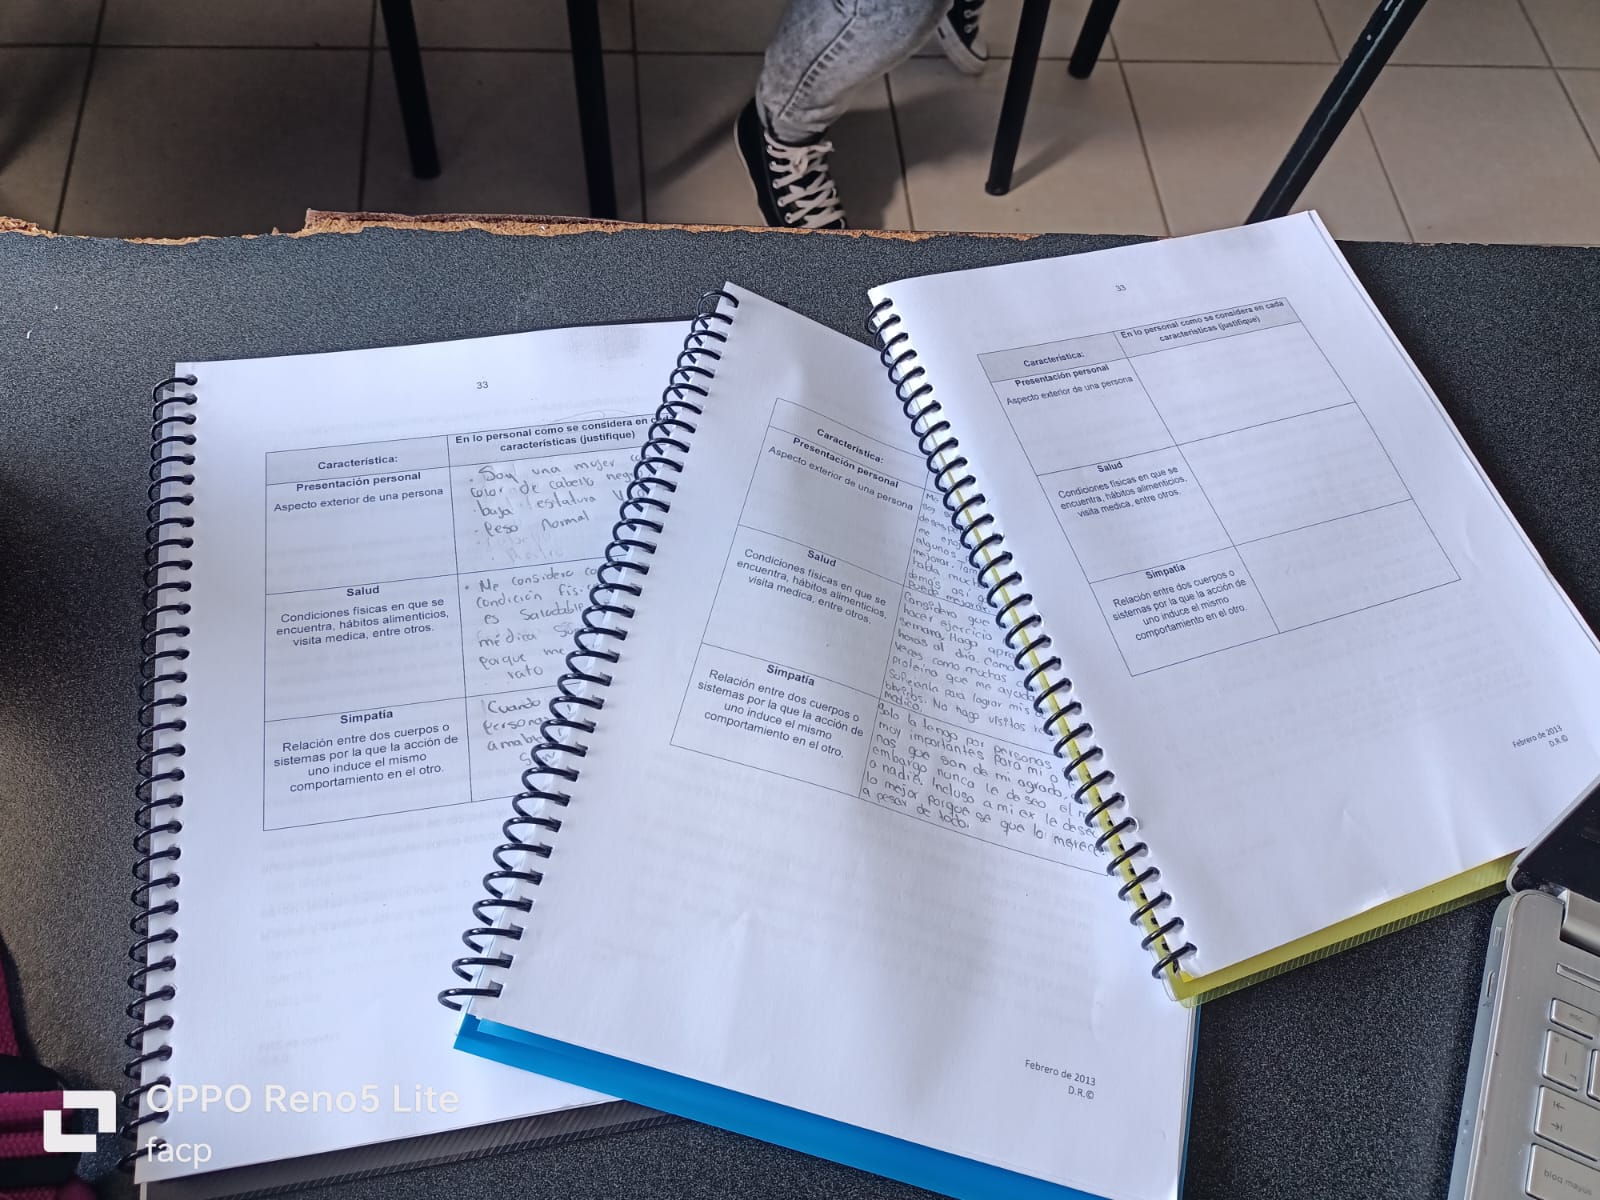 33
Característica:
En lo personal como se considera en cada
características (justifique)
Presentación personal
Aspecto exterior de una persona
· Soy una mujer
color de cabello negro
baja estatura
· Peso normal
Salud
Condiciones físicas en que se
encuentra, hábitos alimenticios,
visita medica, entre otros.
· Me considero
condición
es saludable
médica
porque me
rato
Simpatía
Relación entre dos cuerpos o
sistemas por la que la acción de
uno induce el mismo
comportamiento en el otro.
Cuando
Característica:
Presentación personal
Aspecto exterior de una persona
me
algunos
mejorar.
habla
demás así
puedo mejorar.
Salud
Condiciones físicas en que se
encuentra, hábitos alimenticios,
visita medica, entre otros.
Considero que
hacer ejercicio
semana. Hago
horas al día. Como
veces como muchas
proteína que me ayuda
para lograr mis
No hago visitas
medico.
Simpatía
Relación entre dos cuerpos o
sistemas por la que la acción de
uno induce el mismo
comportamiento en el otro.
Solo la tengo por personas
muy importantes para mi o
nas que son de mi agrado,
embargo nunca le deseo el
a nadie. Incluso a mi ex le
lo mejor porque se que lo merece
a pesar de todo.
Febrero de 2013
D.R.©
33
Característica:
En lo personal como se considera en cada
características (justifique)
Presentación personal
Aspecto exterior de una persona
Salud
Condiciones físicas en que se
encuentra, hábitos alimenticios,
visita medica, entre otros.
Simpatía
Relación entre dos cuerpos o
sistemas por la que la acción de
uno induce el mismo
comportamiento en el otro.
Febrero de 2013
D.R.©
esc
bloq mayús
OPPO Reno5 Lite
facp